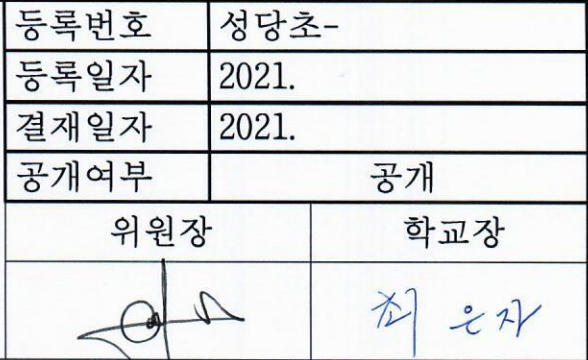 등록번호 성당초-
등록일자 2021.
결재일자 2021.
공개여부 공개
위원장 학교장
최은자